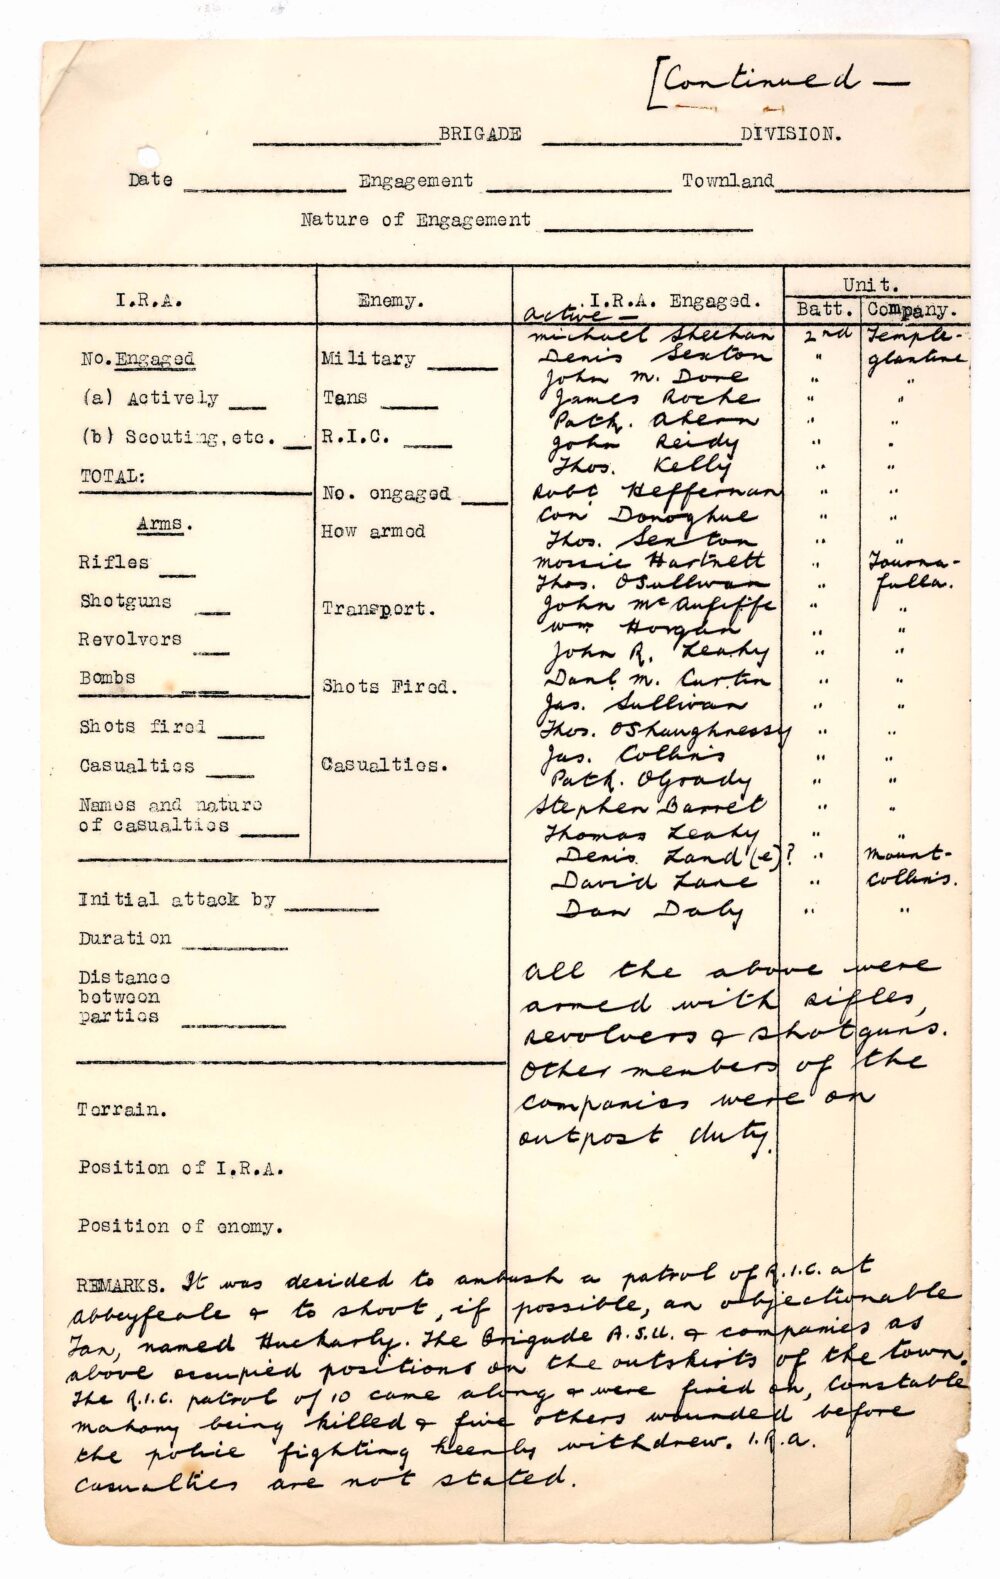 [Continued —
BRIGADE DIVISION.
Date Engagement Townland
Nature of Engagement
I.R.A. Enemy. I.R.A. Engaged. Unit.
Batt. Company.
No. Engaged
(a) Actively
(b) Scouting, etc.
TOTAL:
Arms.
Rifles
Shotguns
Revolvers
Bombs
Shots fired
Casualties
Names and nature
of casualties
Initial attack by
Duration
Distance
between
parties
Terrain.
Position of I.R.A.
Position of enemy.
Military
Tans
R.I.C.
No. engaged
How armed
Transport.
Shots Fired.
Casualties.
Active —
Michael Sheehan 2nd Temple-
Denis Sexton " glantine
John M. Dore " "
James Roche " "
Patk. Ahern " "
John Reidy " "
Thos. Kelly " "
Robt Heffernan " "
Con Donoghue " "
Thos. Sexton " "
Mossie Hartnett " Tourna-
Thos. OSullivan " fulla.
John McAuliffe " "
Wm Horgan " "
John R. Leahy " "
Danl. M. Curtin " "
Jas. Sullivan " "
Thos. OShaughnessy " "
Jas. Collins " "
Patk. OGrady " "
Stephen Barret " "
Thomas Leahy " "
Denis Land (e)? " Mount-
David Lane " Collins.
Dan Daly " "
All the above were
armed with rifles,
revolvers & shotguns.
Other members of the
companies were on
outpost duty.
REMARKS. It was decided to ambush a patrol of R.I.C. at
Abbeyfeale & to shoot, if possible, an objectionable
Tan, named Huckarly. The Brigade A.S.U. & companies as
above occupied positions on the outskirts of the town.
The R.I.C. patrol of 10 came along & were fired on, Constable
Mahony being killed & five others wounded before
the police fighting keenly withdrew. I.R.A.
casualties are not stated.